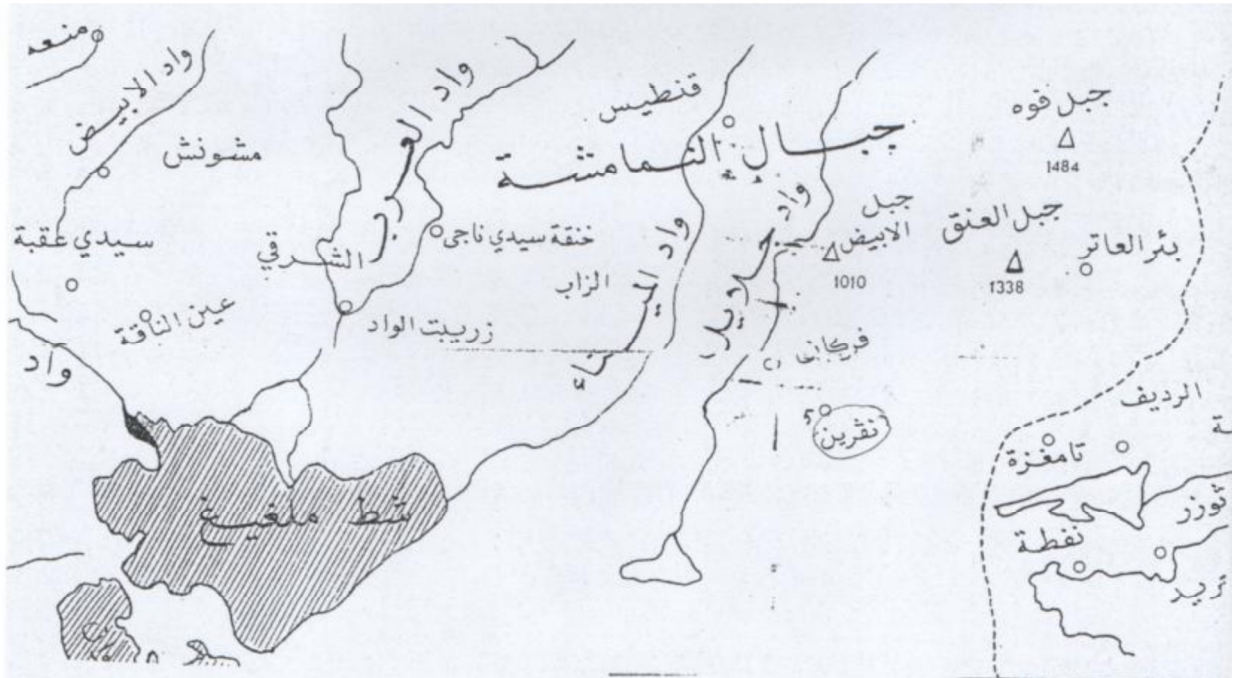 منعه
واد الابيض
مشونش
سيدي عقبة
عين الناقة
واد
واد العرب
الشرقي
خنقة سيدي ناجي
زريبت الواد
الزاب
قنطيس
جبال النمامشة
واد
واد
جبل
الابيض
1010
جبل فوه
1484
جبل العنق
1338
بئر العاتر
فركان
نقرين
الرديف
تامغزة
توزر
نفطة
شط ملغيغ